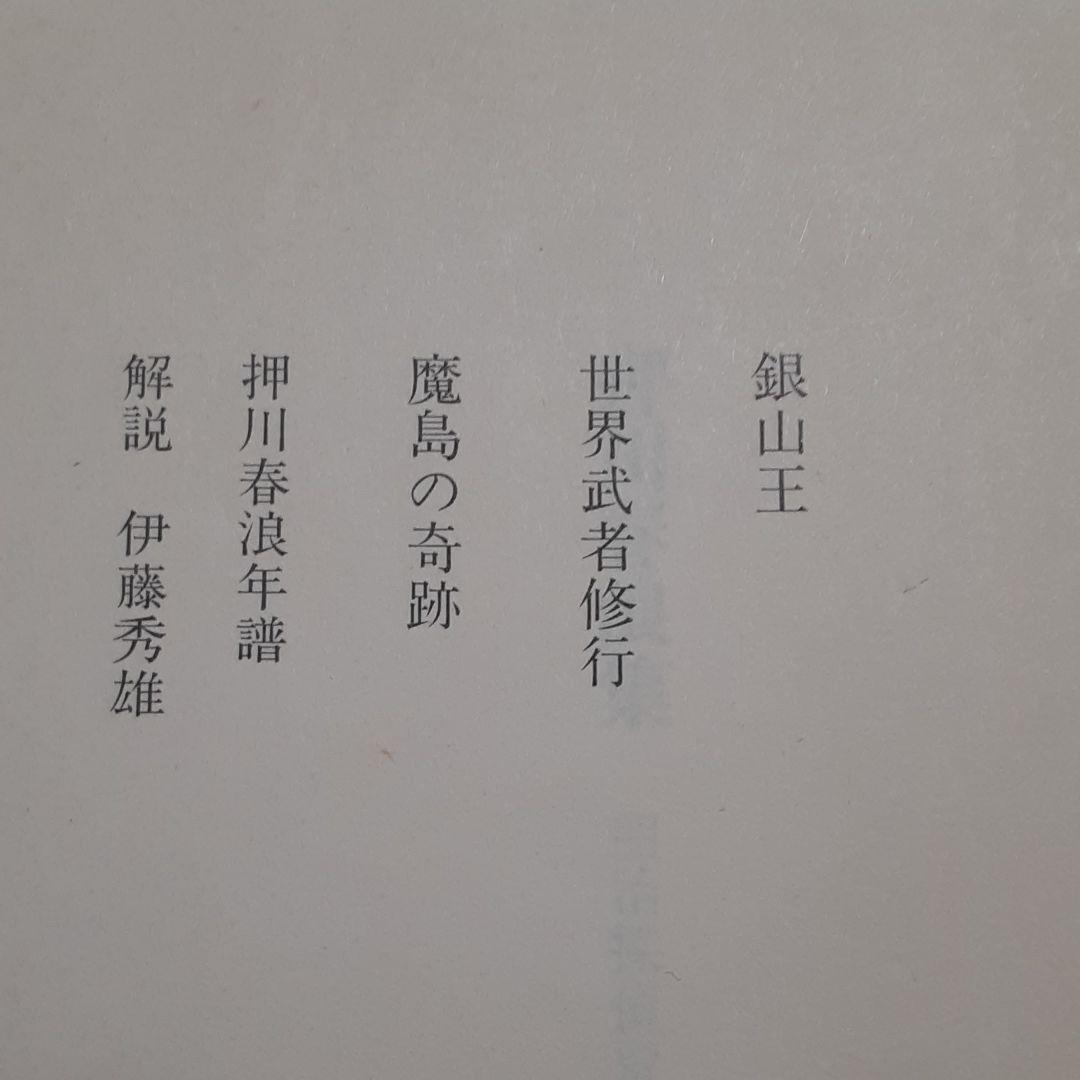 銀山王
世界武者修行
魔島の奇跡
押川春浪年譜
解説　伊藤秀雄